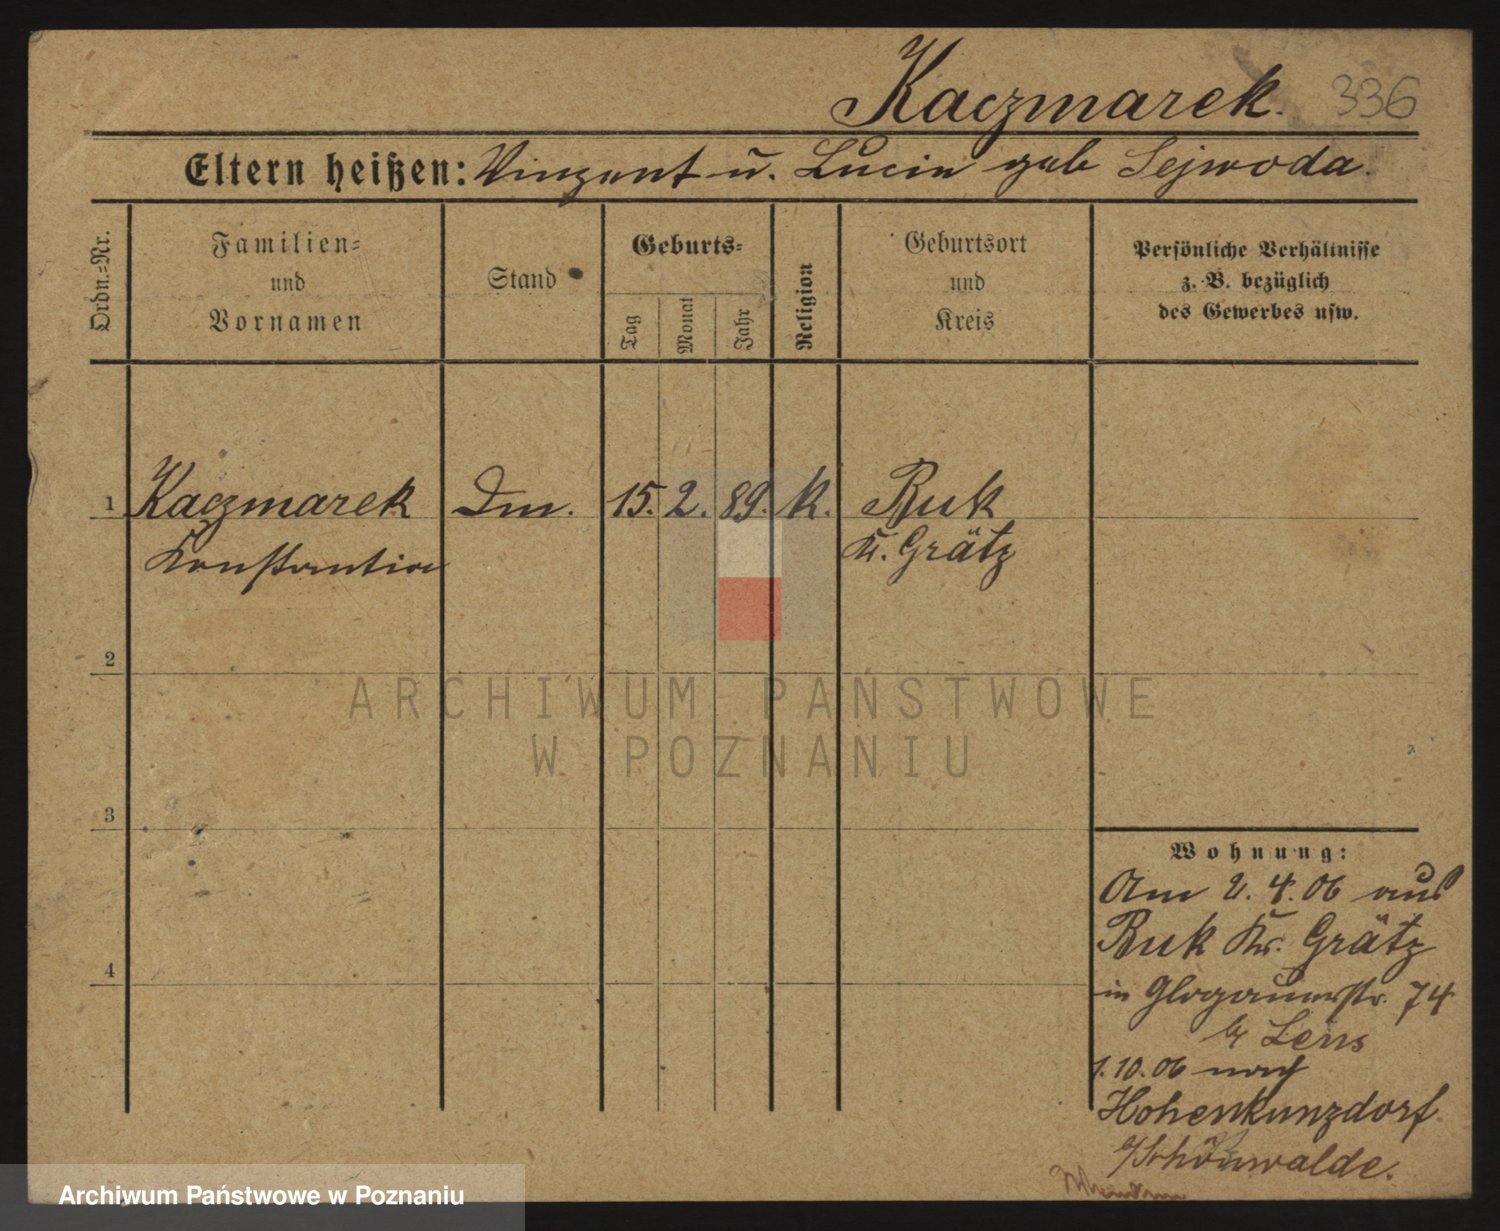 Kaczmarek. 336
Eltern heißen: Vinzent u. Lucia geb Sejwoda.
Ordn.-Nr.
Familien-
und
Vornamen
Stand
Geburts-
Tag
Monat
Jahr
Religion
Geburtsort
und
Kreis
Persönliche Verhältnisse
z. B. bezüglich
des Gewerbes usw.
1 Kaczmarek Dm. 15. 2. 89. k. Buk
Konstantia K. Grätz
2
ARCHIWUM PAŃSTWOWE
W POZNANIU
3
4
Wohnung:
Am 2. 4. 06 aus
Buk Kr. Grätz
in Glogauerstr. 74
b/ Lens
1. 10. 06 nach
Hohenkunzdorf
b/Schönwalde.
Archiwum Państwowe w Poznaniu